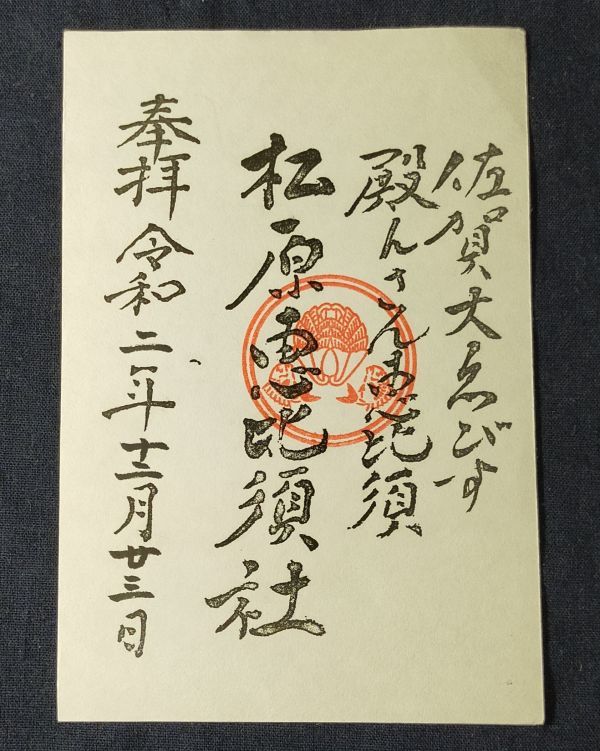 佐賀大ゑびす
殿んさん恵比須
松原恵比須社
奉拝 令和二年十二月廿三日